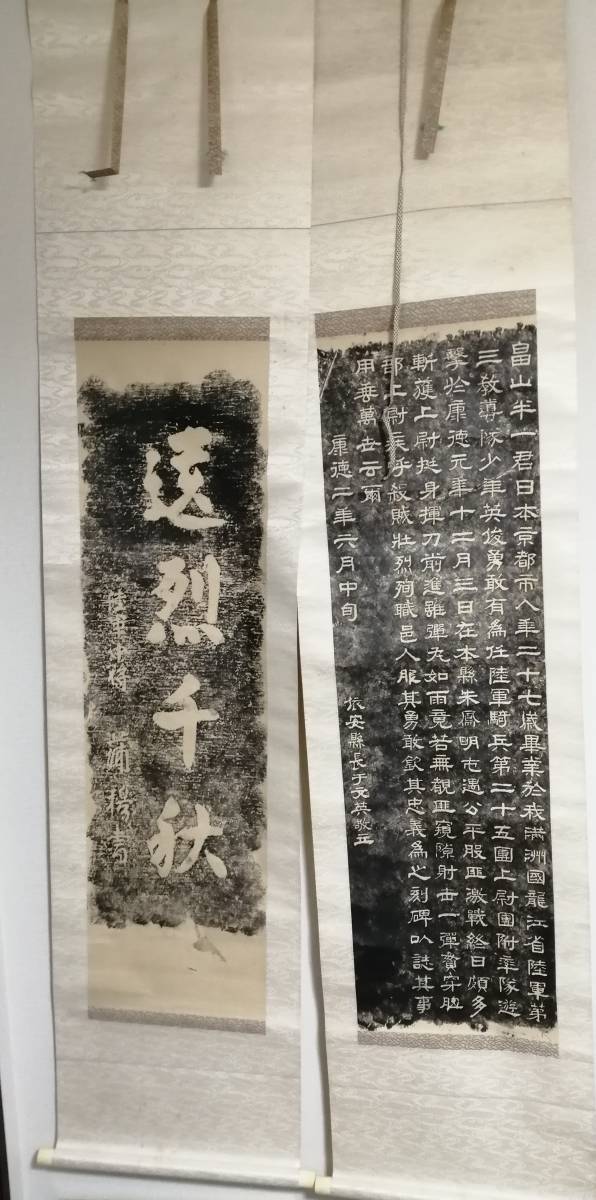 畠山半一君日本京都市人年二十七歲畢業於我滿洲國龍江省陸軍第
三教導隊少年英俊勇敢有為任陸軍騎兵第二十五團上尉團附率隊遊
擊於康德元年十二月三日在本縣朱屯遇公平股匪激戰終日頗多
斬獲上尉挺身揮刀前進雖彈丸如雨竟若無覩匪窺隙射击一彈貫穿
上尉手殺賊壯烈殉職邑人服其勇敢欽其忠義為之刻碑以誌其事
用垂萬世云爾
康德二年六月中旬
縣長于文英敬立
烈千秋
陸軍中將
書